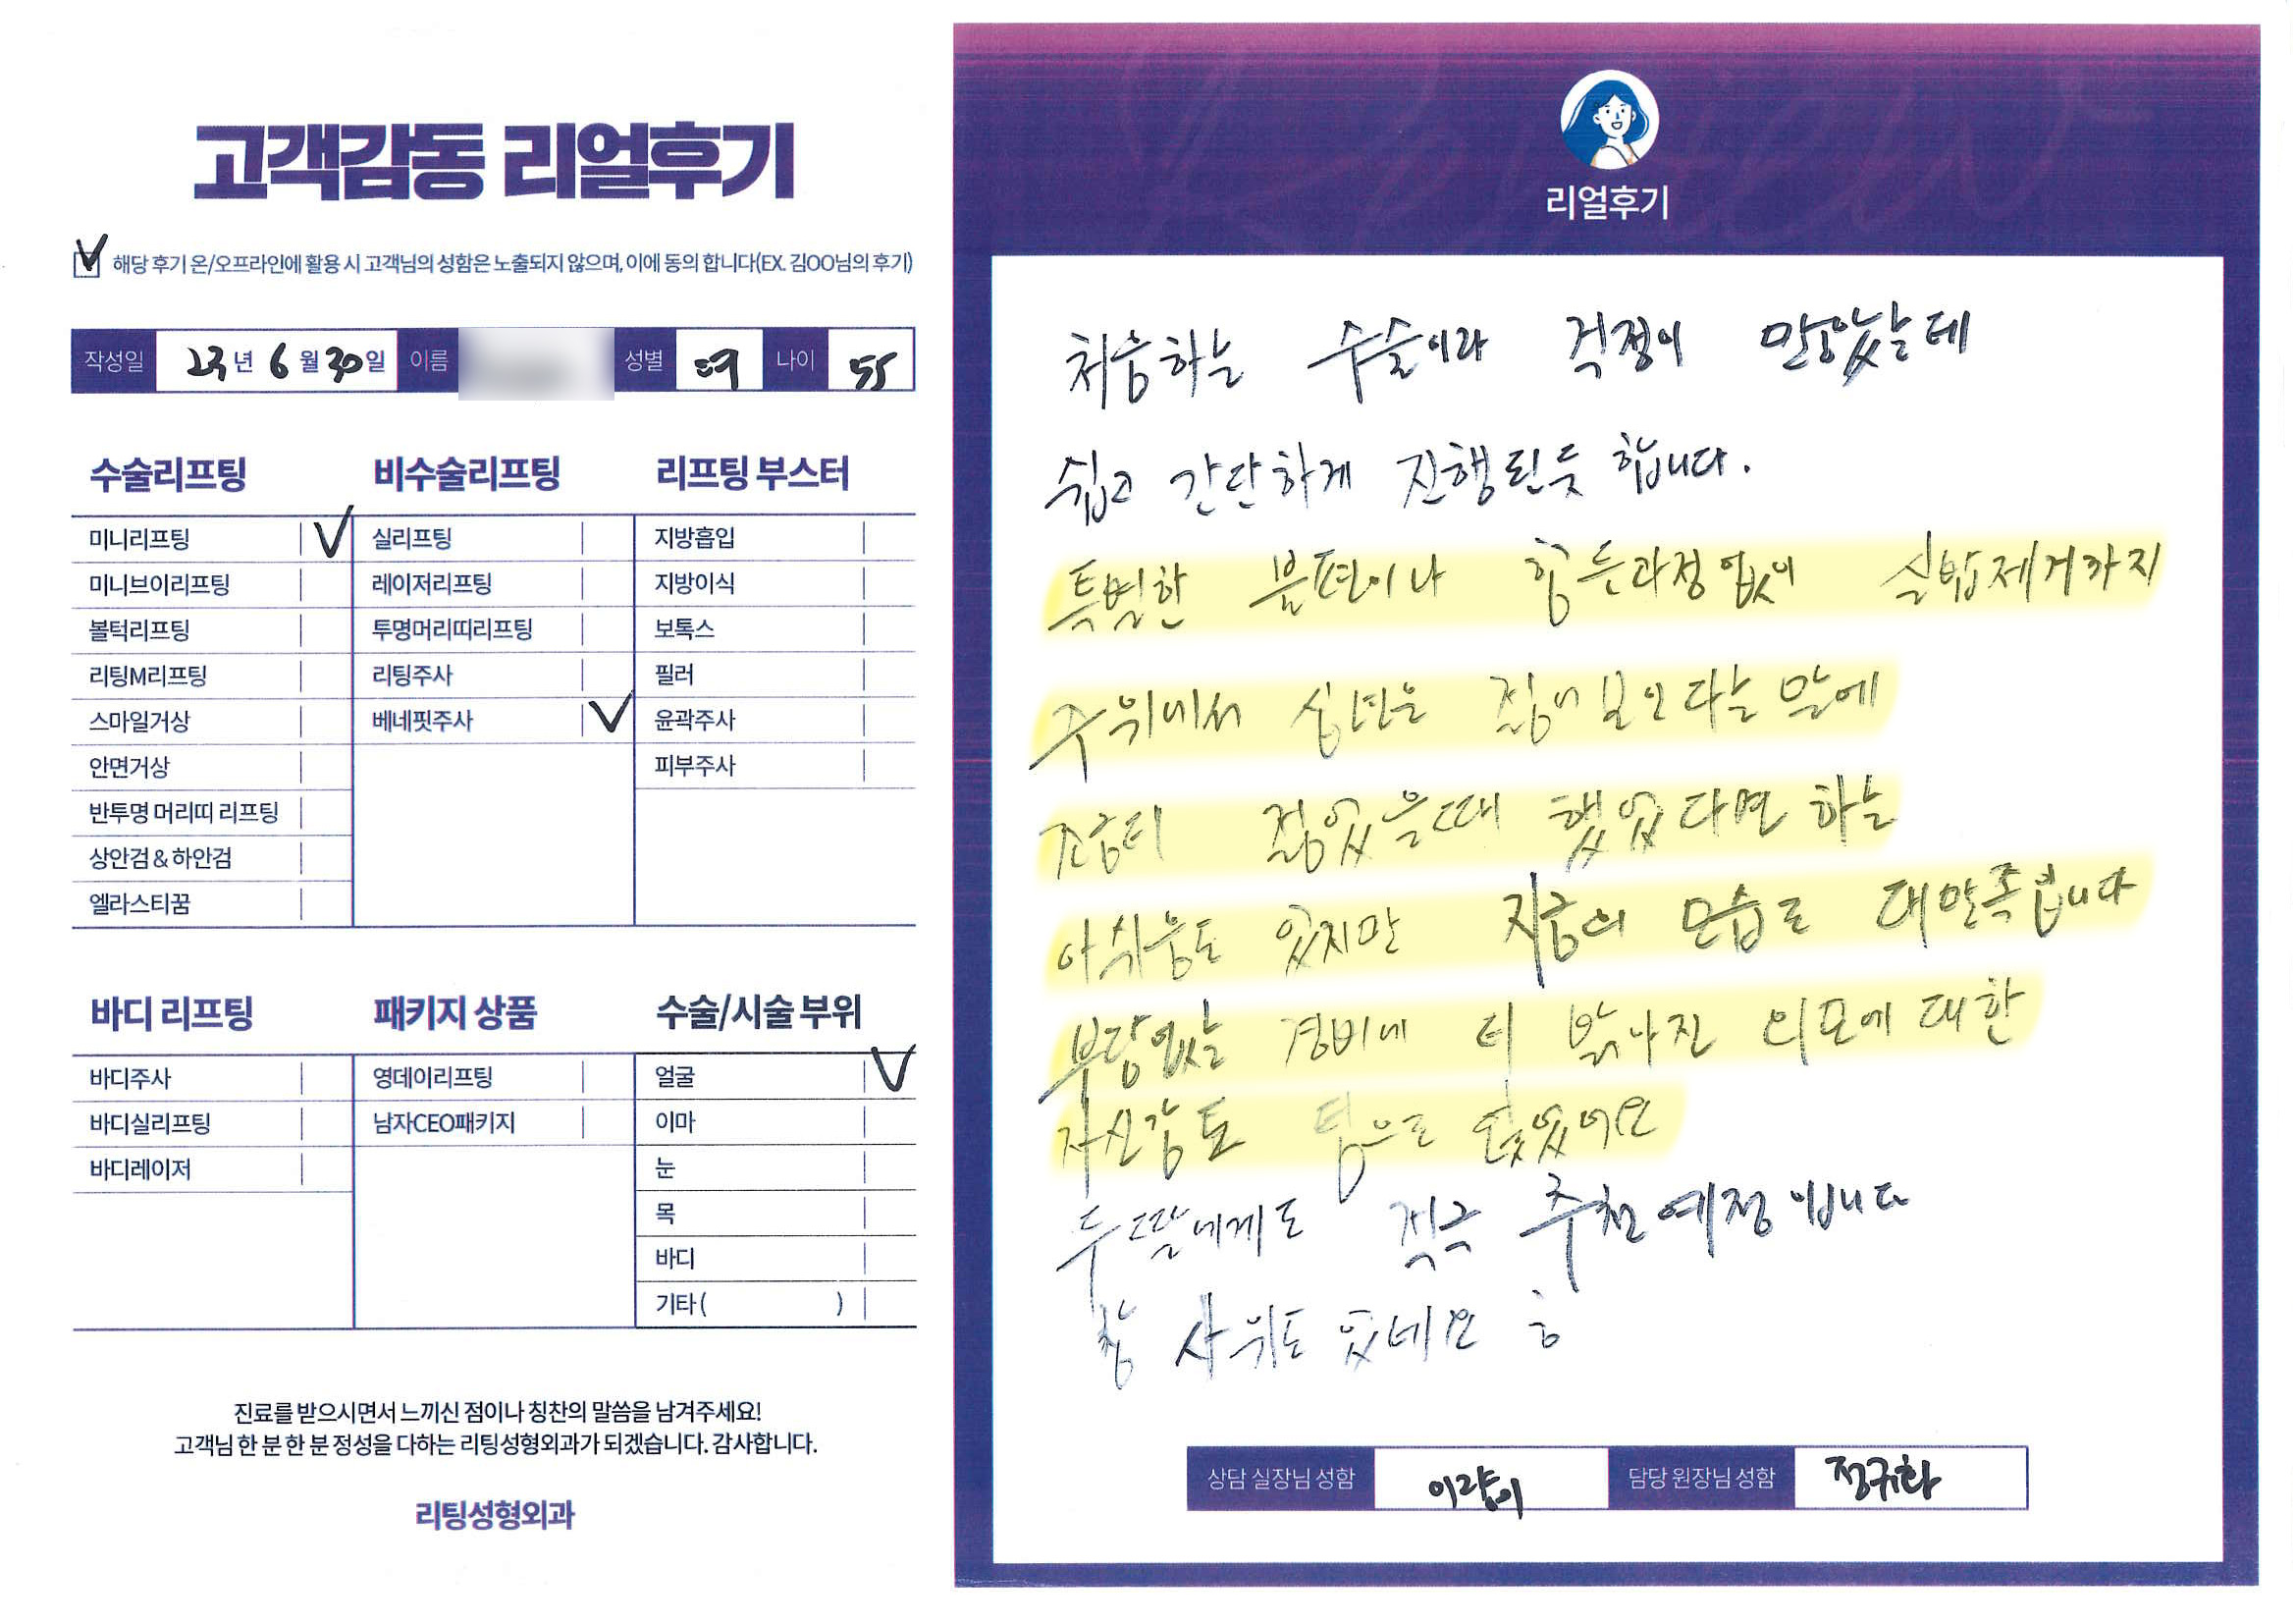 고객감동 리얼후기
해당 후기 온/오프라인에 활용 시 고객님의 성함은 노출되지 않으며, 이에 동의 합니다(EX. 김OO님의 후기)
작성일 23년 6월 30일 이름 성별 여 나이 55
수술리프팅
미니리프팅
미니브이리프팅
볼턱리프팅
리팅M리프팅
스마일거상
안면거상
반투명 머리띠 리프팅
상안검 & 하안검
엘라스티꿈
비수술리프팅
실리프팅
레이저리프팅
투명머리띠리프팅
리팅주사
베네핏주사
리프팅 부스터
지방흡입
지방이식
보톡스
필러
윤곽주사
피부주사
바디 리프팅
바디주사
바디실리프팅
바디레이저
패키지 상품
영데이리프팅
남자CEO패키지
수술/시술 부위
얼굴
이마
눈
목
바디
기타 ( )
진료를 받으시면서 느끼신 점이나 칭찬의 말씀을 남겨주세요!
고객님 한 분 한 분 정성을 다하는 리팅성형외과가 되겠습니다. 감사합니다.
리팅성형외과
리얼후기
처음하는 수술이라 걱정이 많았날데
쉽고 간단하게 진행된듯 합니다.
특별한 불편이나 힘든과정없이 실밥제거까지
주위에서 십년은 젊어보인다는 말에
조금더 젊었을때 했었다면 하는
아쉬움도 있지만 지금의 모습로 대만족입니다
부담없는 경비에 더 밝아진 외모에 대한
자신감도 덤으로 얻었어요
두딸에게도 적극 추천예정입니다
참 사위도 있네요 ㅎ
상담 실장님 성함
담당 원장님 성함 정규화